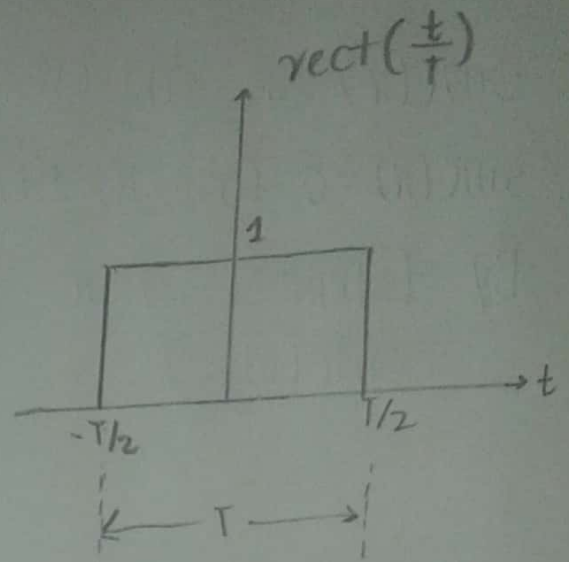 rect(t/T)
1
t
-T/2
T/2
T